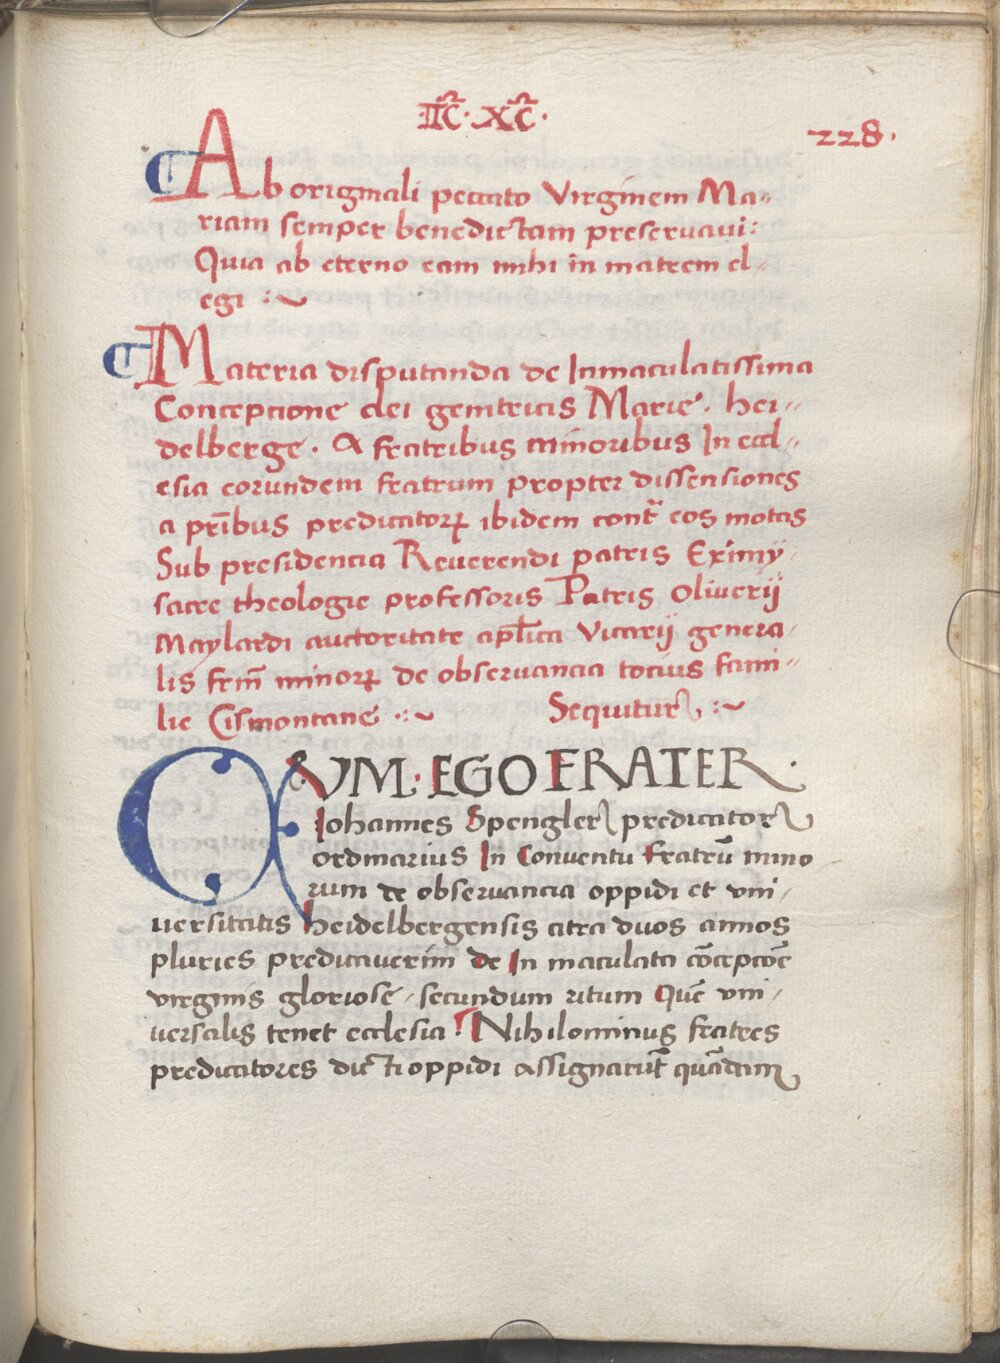 IIC̃. XC̃.
228.
¶ Ab originali peccato Virginem Ma-
riam semper benedictam preservavi:
Quia ab eterno eam mihi in matrem el-
egi :~
¶ Materia disputanda de Inmaculatissima
Conceptione dei genitricis Marie. hei-
delberge. A fratribus minoribus In eccl-
esia eorundem fratrum propter dissensiones
a prı̄bus predicatorꝝ ibidem contª eos motas
Sub presidencia Reverendi patris Eximij
sacre theologie professoris Patris Oliverij
Maylardi auctoritate apl̄ica Vicarij genera-
lis frm̄ minorꝝ de observancia tocius fami-
lie Cismontane :~ Sequitur :~
CVM. EGO FRATER.
Johannes Spengler predicator
ordinarius In Conventu fratrū mino
rum de observancia oppidi et vni-
uersitatis heidelbergensis citra duos annos
pluries predicaverim de In maculata cōcepcōe
virginis gloriose / secundum ritum Quē vni-
versalis tenet ecclesia. Nihilominus fratres
predicatores dicti oppidi assignarūt quādam